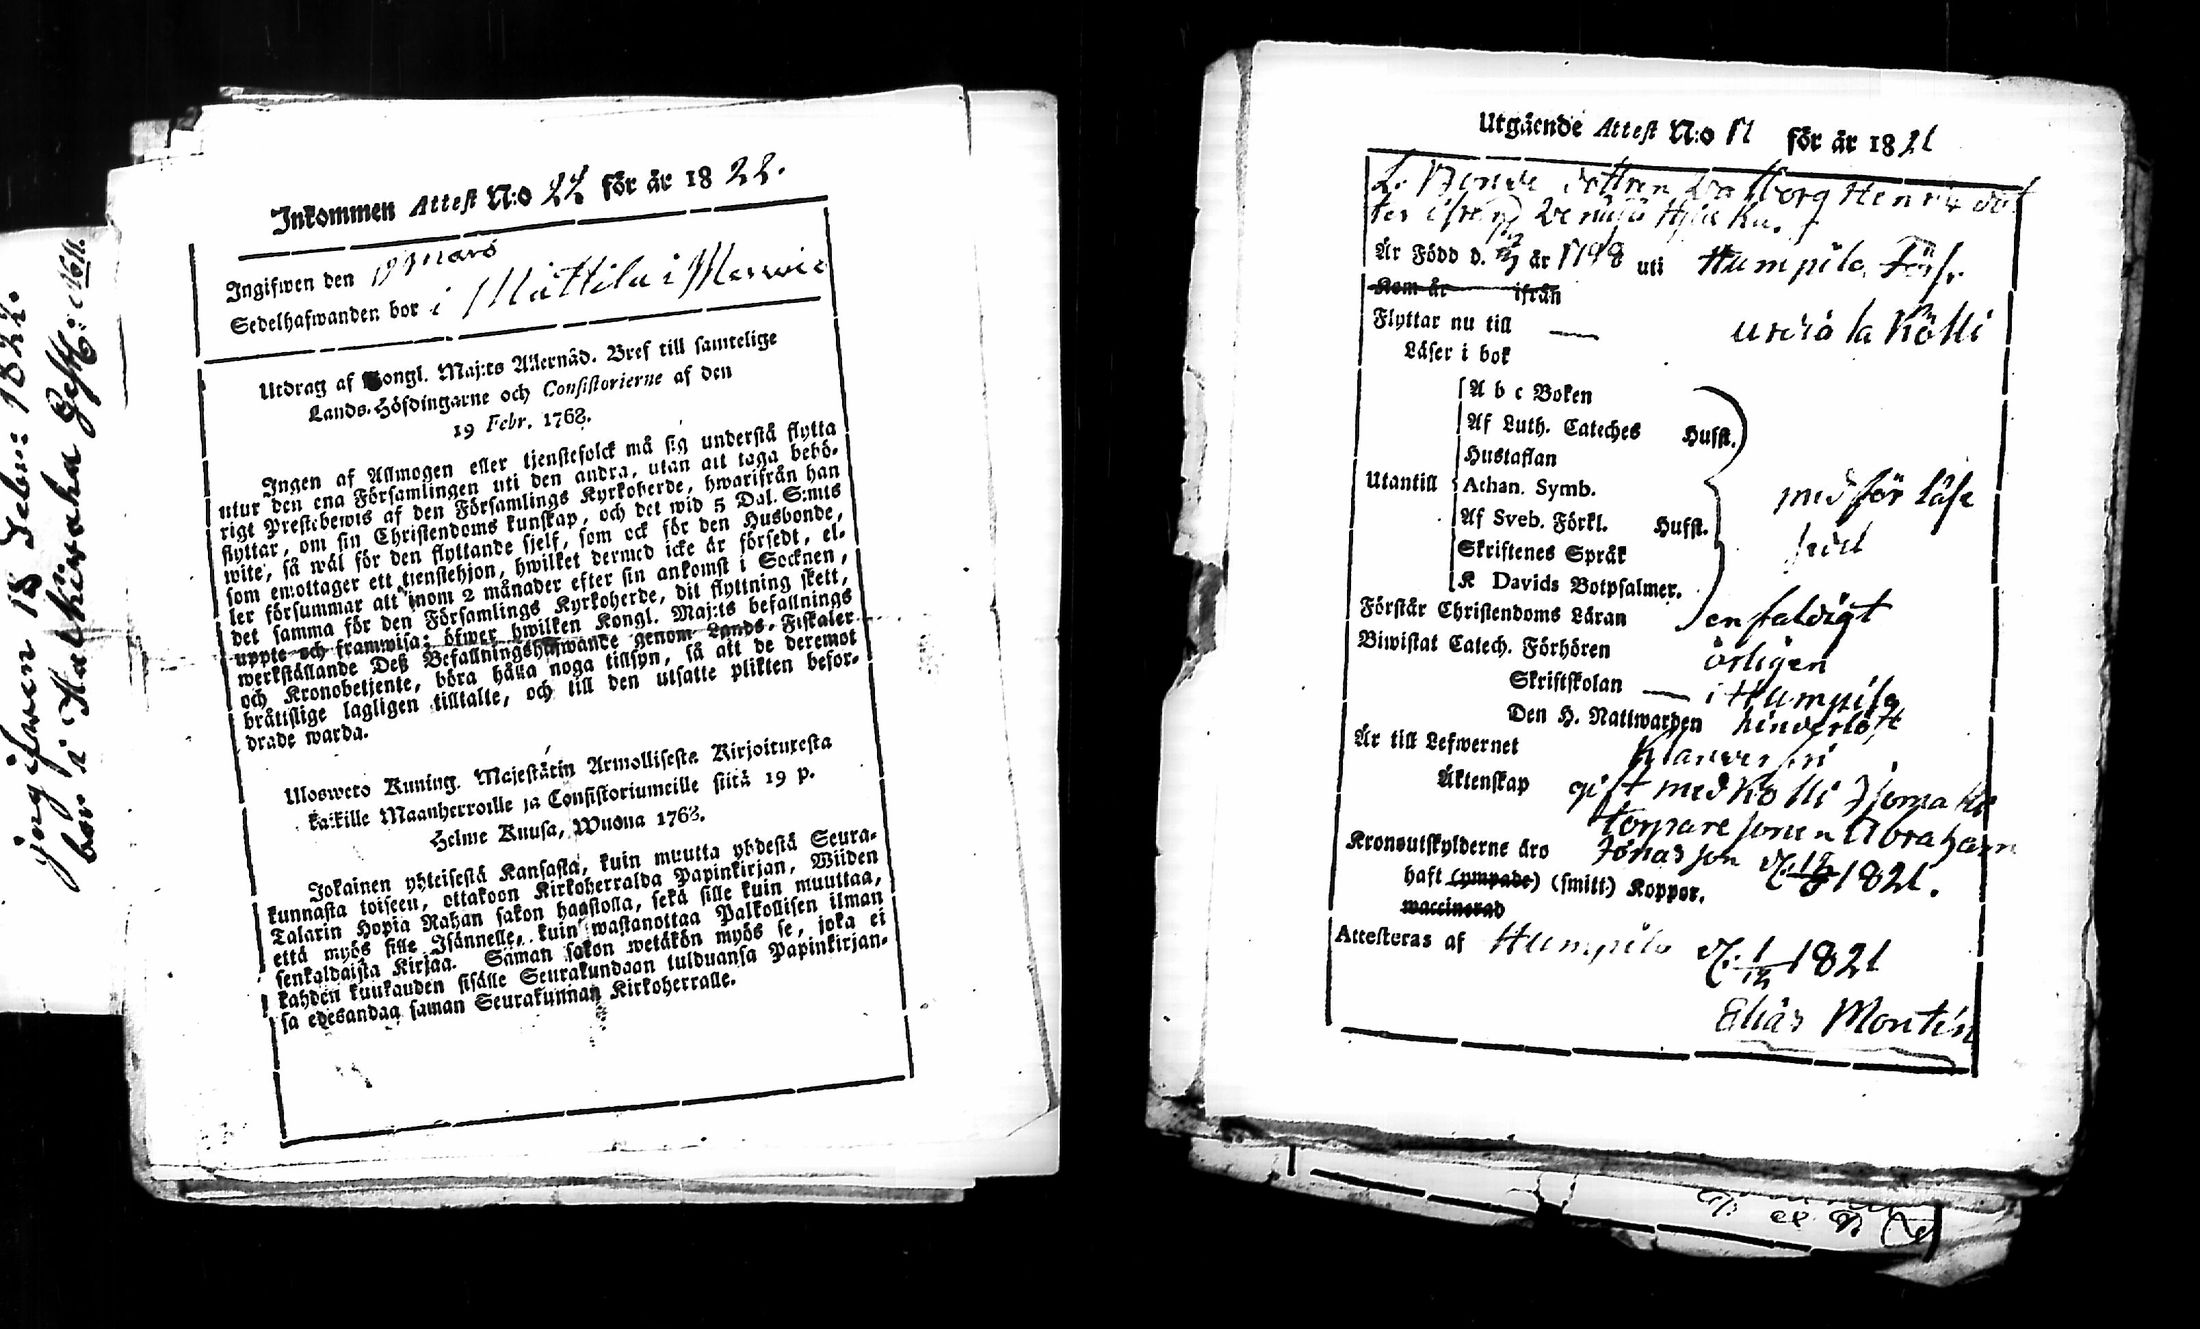 ingifven 18 Febr: 1822.
bor i Kalkiraha
Inkommen Attest N:o 22 för år 1822.
Ingifwen den 18 Mars
Sedelhafwanden bor i Mattila i
Utdrag af Kongl. Maj:ts Allernåd. Bref till samtelige
Lands-Höfdingarne och Consistorierne af den
19 Febr. 1768.
Ingen af Allmogen eller tjenstefolck må sig understå flytta
utur den ena Församlingen uti den andra, utan att taga behö-
rigt Prestebewis af den Församlings Kyrkoherde, hwarifrån han
flyttar, om sin Christendoms kunskap, och det wid 5 Dal. S:mts
wite, så wäl för den flyttande sjelf, som ock för den Husbonde,
som emottager ett tjenstehjon, hwilket dermed icke är försedt, el-
ler försummar att inom 2 månader efter sin ankomst i Socknen,
det samma för den Församlings Kyrkoherde, dit flyttning skett,
uppte och framwisa; öfwer hwilken Kongl. Maj:ts befallnings
werkställande Deß Befallningshafwande genom Lands-Fiskaler
och Kronobetjente, böra hålla noga tillsyn, så att de deremot
bråttslige lagligen tilltalte, och till den utsatte plikten befor-
drade warda.
Ulosweto Kuning. Majestätin Armollisesta Kirjoituxesta
kaikille Maanherroille ja Consistoriumeille siitä 19 p.
Helme Kuusa, Wuona 1768.
Jokainen yhteisestä Kansasta, kuin muutta yhdestä Seura-
kunnasta toiseen, ottakoon Kirkoherralda Papinkirjan, Wiiden
Talarin Hopia Rahan sakon haastolla, sekä sille kuin muuttaa,
että myös sille Isännelle, kuin wastanottaa Palkollisen ilman
senkaldaista Kirjaa. Saman sakon wetäkön myös se, joka ei
kahden kuukauden sisälle Seurakundaan tulduansa Papinkirjan-
sa edesandaa saman Seurakunnan Kirkoherralle.
Utgående Attest N:o 51 för år 1821
Bonde dottren Walborg Henricsdot
ter ifrån
Är Född d. år 1798 uti Humpila
Kom år ifrån
Flyttar nu till — Urdiala Kölli
Läser i bok
A b c Boken
Af Luth. Cateches Husst.
Hustaflan
Utantill Athan. Symb. med för låf
Af Sveb. Förkl. Husst.
Skriftenes Språk
K Davids Botpsalmer.
Förstår Christendoms Läran enfaldigt
Biwistat Catech. Förhören årligen
Skriftskolan — i Humpila
Den H. Nattwarden hinderlöst
Är till Lefwernet
Äktenskap gift med Kölli
Torpare sonen Abraham
Kronoutskylderne äro Jonas son 1821.
haft (ympade) (smitt.) Koppor.
waccinerad
Attesteras af Humpila d. 1/12 1821
Elias Montin